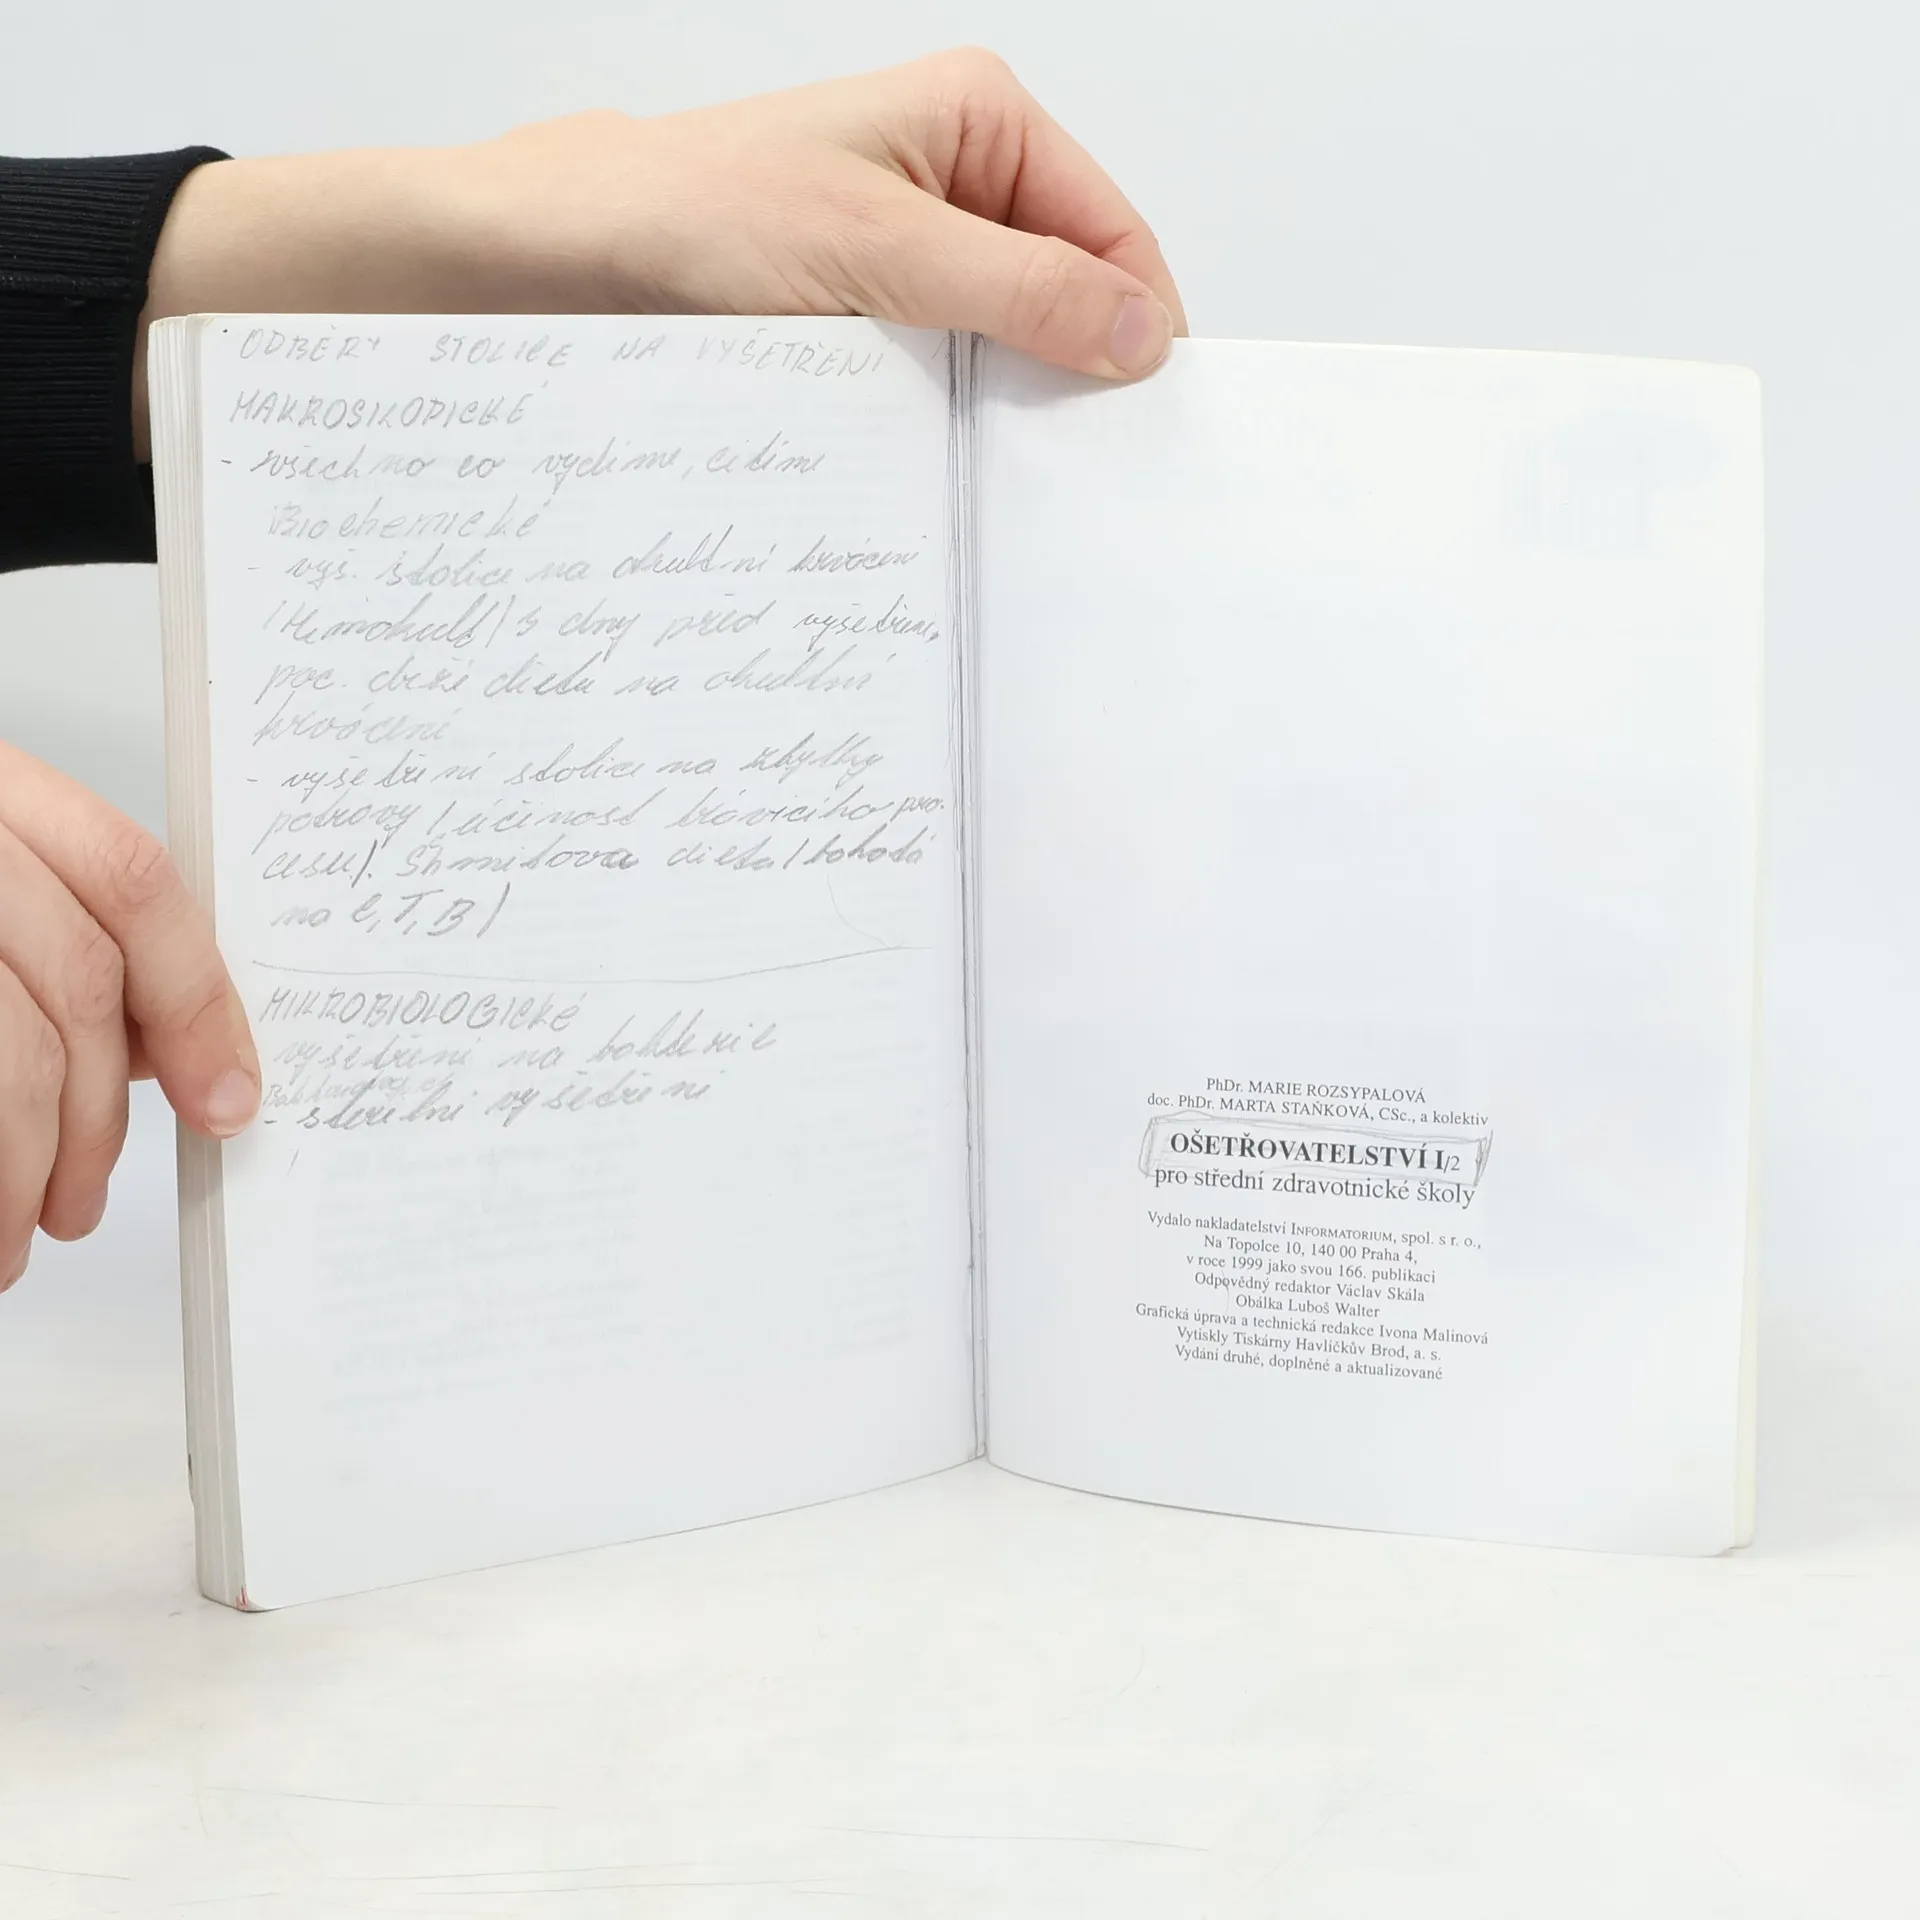 ODBĚRY STOLICE NA VYŠETŘENÍ
MAKROSKOPICKÉ
- všechno co vydíme, cítíme
Biochemické
- vyš. stolice na okultní krvácení
(Hemokult) 3 dny před vyšetření,
poc. drží dietu na okultní
krvácení
- vyšetření stolice na zbytky
potravy (účinost trávicího pro-
cesu). Shmitova dieta (bohatá
na C, T, B)
MIKROBIOLOGICKÉ
vyšetření na bakterie
- sterilní vyšetření
PhDr. MARIE ROZSYPALOVÁ
doc. PhDr. MARTA STAŇKOVÁ, CSc., a kolektiv
OŠETŘOVATELSTVÍ I/2
pro střední zdravotnické školy
Vydalo nakladatelství INFORMATORIUM, spol. s r. o.,
Na Topolce 10, 140 00 Praha 4,
v roce 1999 jako svou 166. publikaci
Odpovědný redaktor Václav Skála
Obálka Luboš Walter
Grafická úprava a technická redakce Ivona Malinová
Vytiskly Tiskárny Havlíčkův Brod, a. s.
Vydání druhé, doplněné a aktualizované